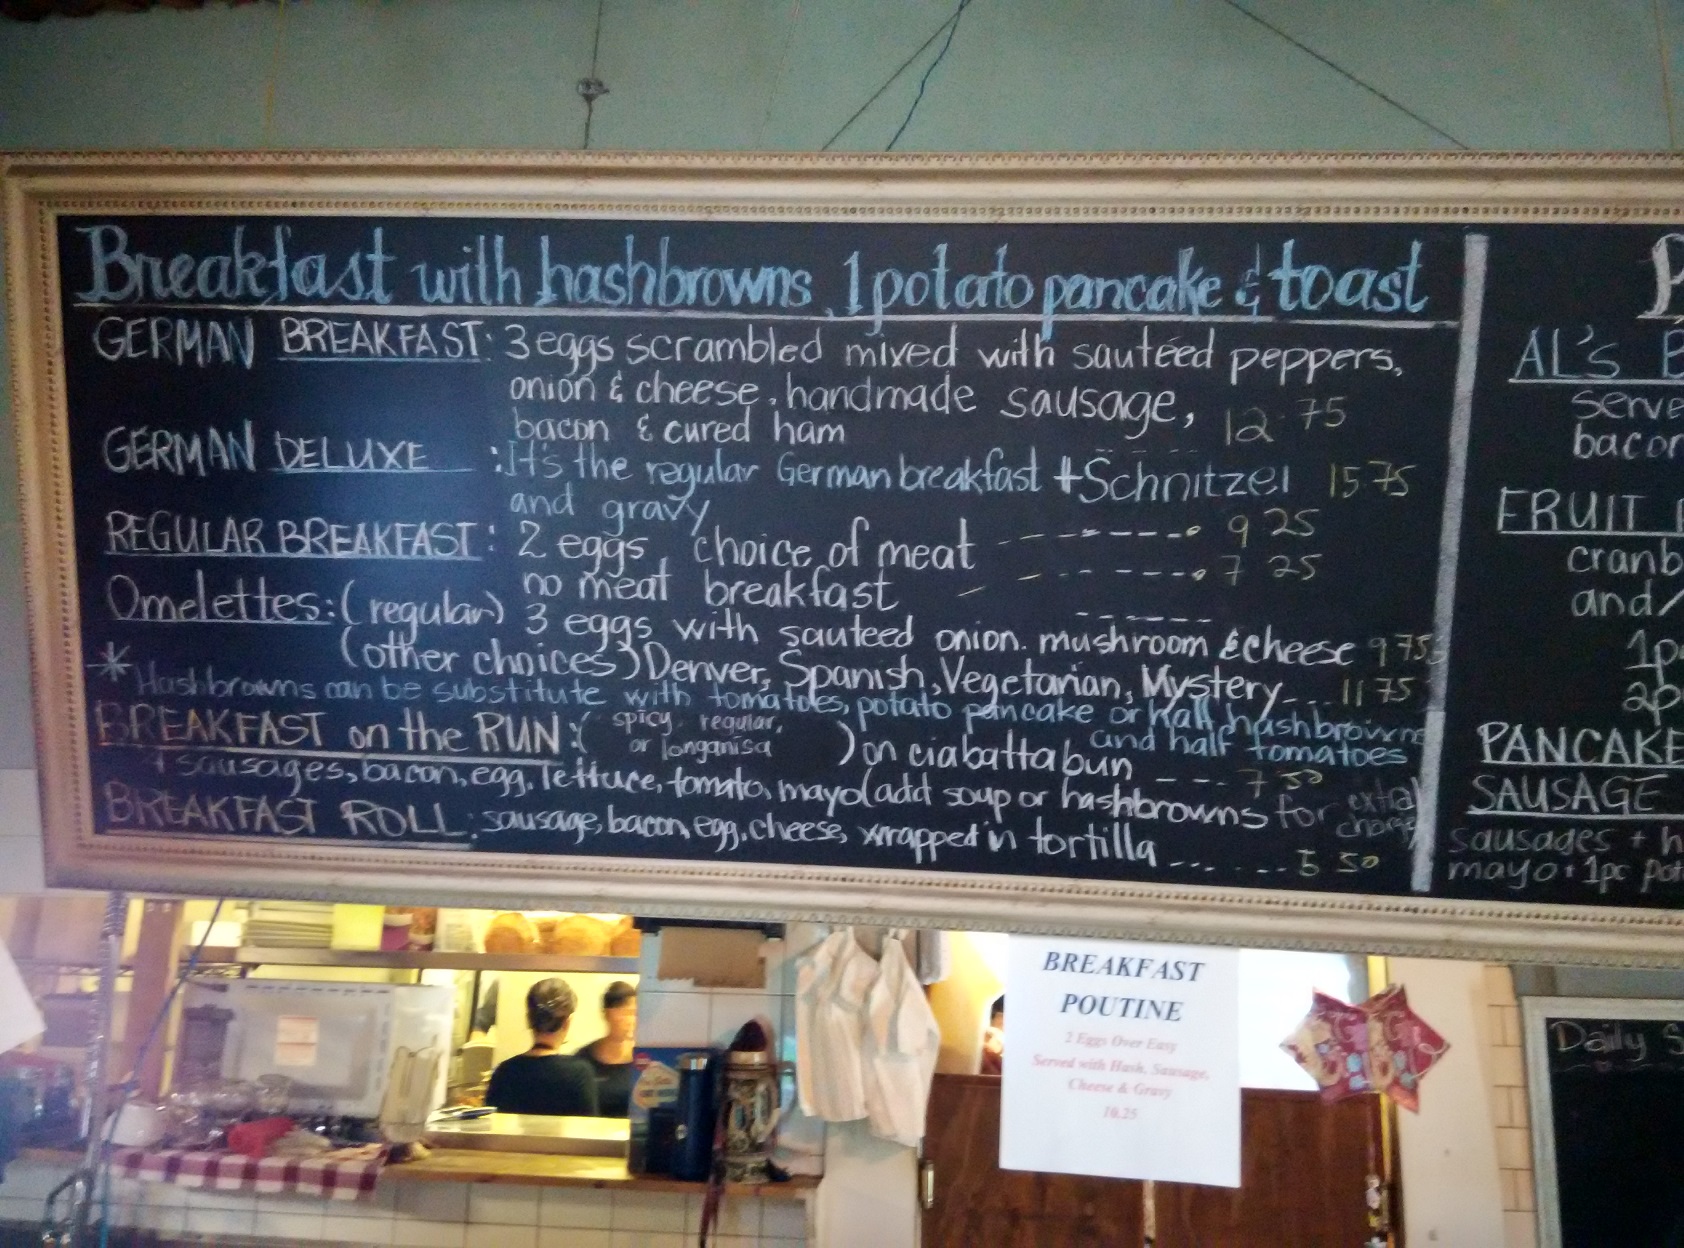 Breakfast with hashbrowns, 1 potato pancake & toast
GERMAN BREAKFAST: 3 eggs scrambled mixed with sautéed peppers,
onion & cheese, handmade sausage,
bacon & cured ham 12.75
GERMAN DELUXE : It's the regular German breakfast + Schnitzel 15.75
and gravy
REGULAR BREAKFAST: 2 eggs, choice of meat ------- 9 25
no meat breakfast ------- 7 25
Omelettes: (regular) 3 eggs with sauteed onion. mushroom & cheese 9 75
(other choices) Denver, Spanish, Vegetarian, Mystery... 11 75
* Hashbrowns can be substitute with tomatoes, potato pancake or half hashbrowns
and half tomatoes
BREAKFAST on the RUN: (spicy, regular,
or longanisa) on ciabatta bun --- 7 50
+ sausages, bacon, egg, lettuce, tomato, mayo (add soup or hashbrowns for extra
charge)
BREAKFAST ROLL: sausage, bacon, egg, cheese, wrapped in tortilla ...... 5 50
AL'S
serve
bacon
FRUIT
and/
1p
2p
PANCAKE
SAUSAGE
sausages + h
mayo + 1pc pot
BREAKFAST
POUTINE
2 Eggs Over Easy
Served with Hash, Sausage,
Cheese & Gravy
10.25
Daily S